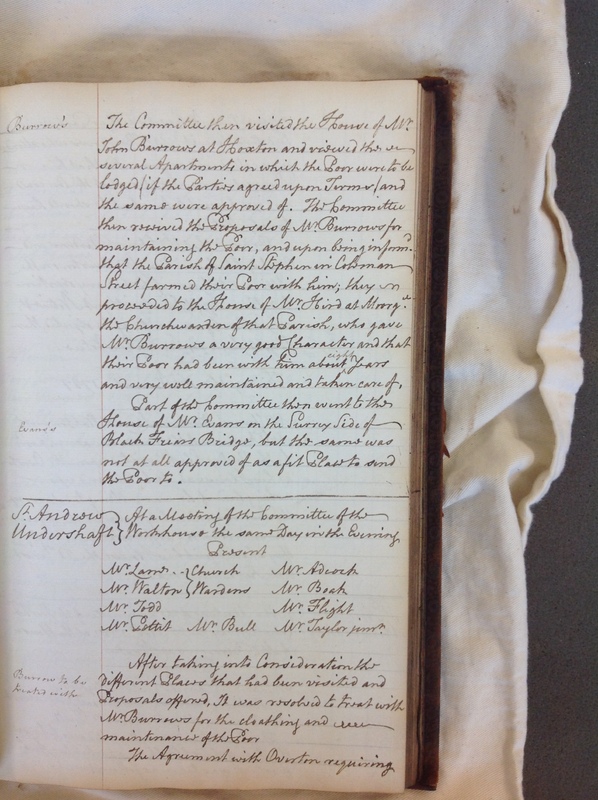 Burrow's
The Committee then visited the House of Mr.
John Burrows at Hoxton and viewed the
several Apartments in which the Poor were to be
lodged (if the Parties agreed upon Terms) and
the same were approved of. The Committee
then received the Proposals of Mr. Burrows for
maintaining the Poor, and upon being inform'd
that the Parish of Saint Stephen in Coleman
Street farmed their Poor with him; they
proceeded to the House of Mr. Hird at Moorg.te
the Churchwarden of that Parish, who gave
Mr. Burrows a very good Character and that
their Poor had been with him about eight Years
and very well maintained and taken care of.
Part of the Committee then went to the
Evans's
House of Mr. Evans on the Surry Side of
Black Friars Bridge, but the same was
not at all approved of as a fit Place to send
the Poor to.
St. Andrew Undershaft
At a Meeting of the Committee of the
Workhouse the same Day in the Evening
Present
Mr. Lam Church Mr. Adcock
Mr. Walton Wardens Mr. Beak
Mr. Todd Mr. Flight
Mr. Pettit Mr. Bull Mr. Taylor junr.
After taking into Consideration the
Burrow to be treated with
different Places that had been visited and
Proposals offered, It was resolved to treat with
Mr. Burrows for the cloathing and
maintenance of the Poor
The Agreement with Overton requiring